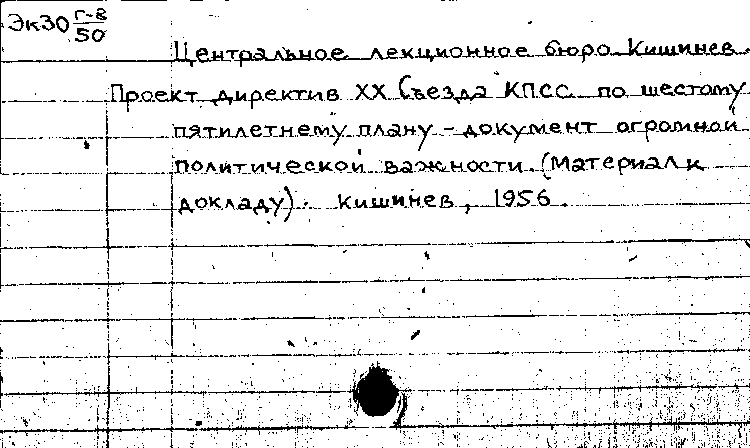 Эк30 г-8/50
Центральное лекционное бюро Кишинев.
Проект директив XX Съезда КПСС по шестому
пятилетнему плану - документ огромной
политической важности. (Материал к
докладу). Кишинев, 1956.